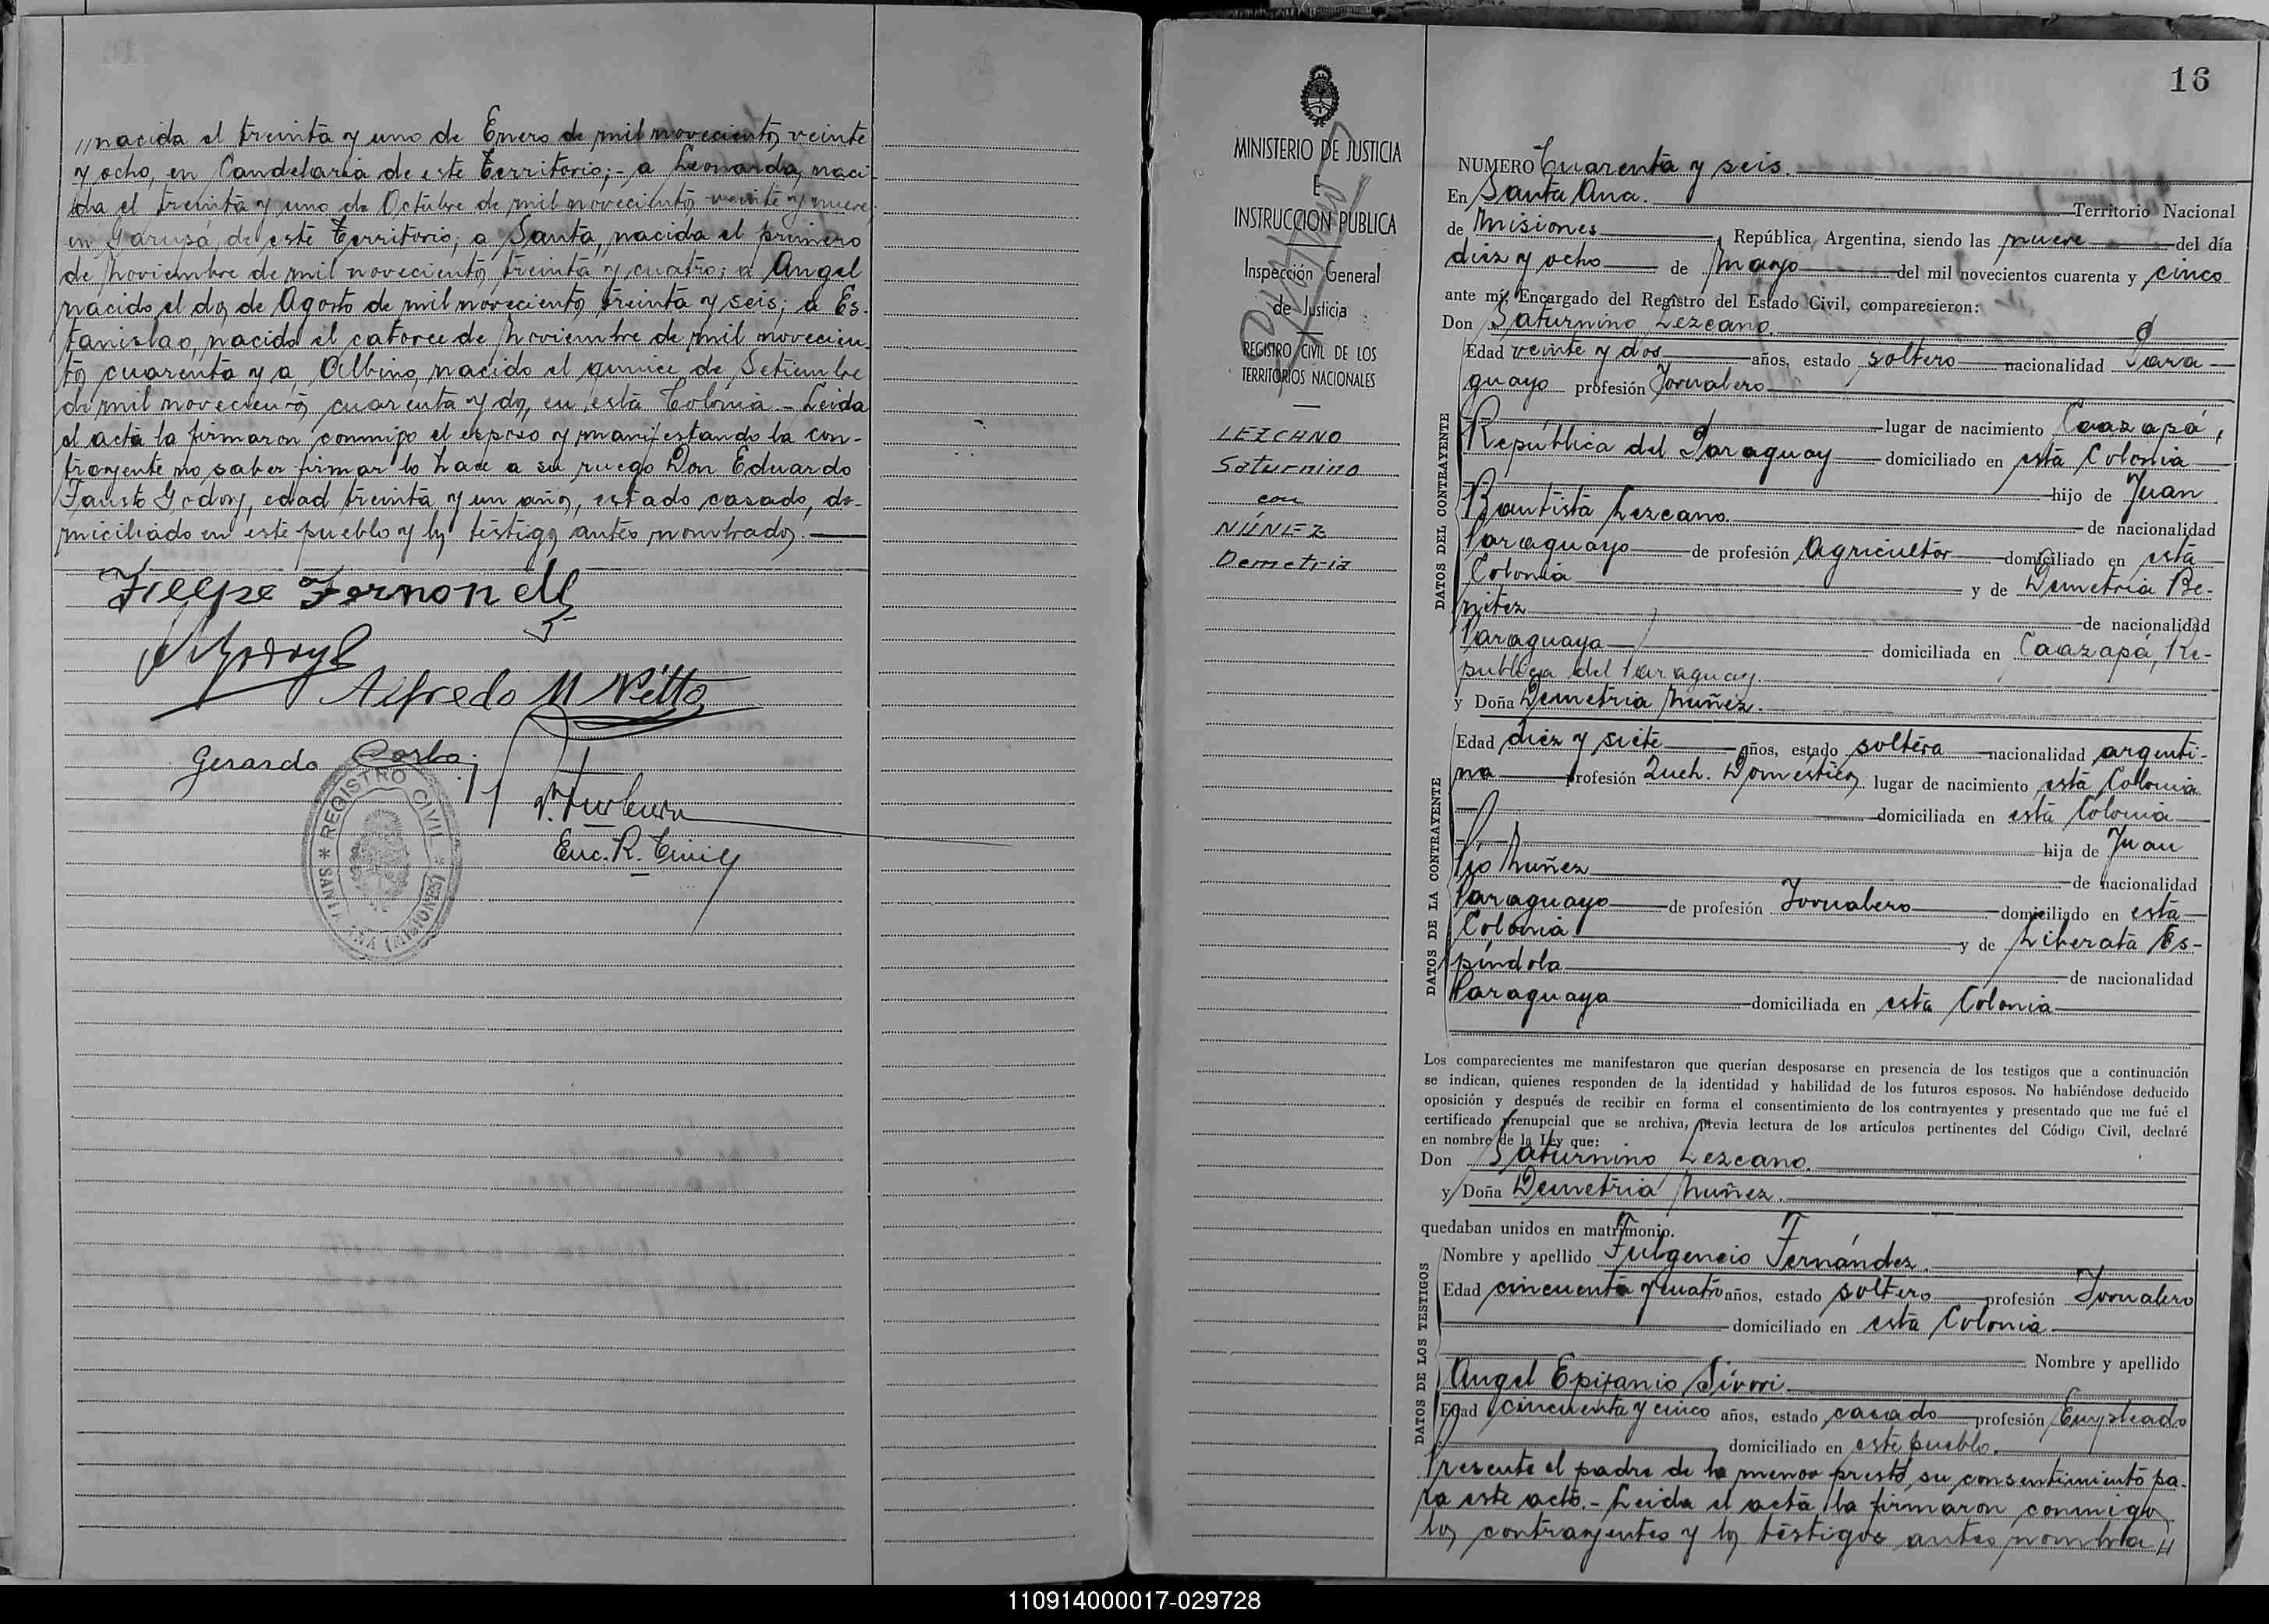 „nacida el treinta y uno de Enero de mil novecientos veinte
y ocho, en Candelaria de este Territorio;- a Leonarda, naci-
da el treinta y uno de Octubre de mil novecientos veinte y nueve
en Garupá, de este Territorio; a Santa, nacida el primero
de Noviembre de mil novecientos treinta y cuatro; a Angel
nacido el dos de Agosto de mil novecientos treinta y seis; a Es-
tanislao, nacido el catorce de Noviembre de mil novecien-
tos cuarenta y a Albino, nacido el quince de Setiembre
de mil novecientos cuarenta y dos, en esta Colonia.- Leida
el acta la firmaron conmigo el esposo y manifestando la con-
trayente no saber firmar lo hace a su ruego Don Eduardo
Fausto Godoy, edad treinta y un años, estado casado, do-
miciliado en este pueblo y los testigos antes nombrados.
Alfredo M
Gerardo
Enc. R. Civil
REGISTRO CIVIL * SANTA ANA (MISIONES) *
16
MINISTERIO DE JUSTICIA
E
INSTRUCCION PUBLICA
Inspección General
de Justicia
REGISTRO CIVIL DE LOS
TERRITORIOS NACIONALES
LEZCANO
Saturnino
con
NÚNEZ
Demetria
NUMERO Cuarenta y seis.
En Santa Ana. Territorio Nacional
de Misiones, República Argentina, siendo las nueve del día
diez y ocho de Mayo del mil novecientos cuarenta y cinco
ante mí, Encargado del Registro del Estado Civil, comparecieron:
Don Saturnino Lezcano.
DATOS DEL CONTRAYENTE
Edad veinte y dos años, estado soltero nacionalidad Para-
guayo profesión Jornalero
lugar de nacimiento Caazapá,
República del Paraguay domiciliado en esta Colonia
hijo de Juan
Bautista Lezcano. de nacionalidad
Paraguayo de profesión Agricultor domiciliado en esta
Colonia y de Demetria Be-
nitez de nacionalidad
Paraguaya domiciliada en Caazapá, Re-
publica del Paraguay.
y Doña Demetria Nuñez.
DATOS DE LA CONTRAYENTE
Edad diez y siete años, estado soltera nacionalidad argenti-
na profesión Queh. Domésticos lugar de nacimiento esta Colonia
domiciliada en esta Colonia
hija de Juan
Pío Nuñez de nacionalidad
Paraguayo de profesión Jornalero domiciliado en esta
Colonia y de Liberata Es-
píndola de nacionalidad
Paraguaya domiciliada en esta Colonia
Los comparecientes me manifestaron que querían desposarse en presencia de los testigos que a continuación
se indican, quienes responden de la identidad y habilidad de los futuros esposos. No habiéndose deducido
oposición y después de recibir en forma el consentimiento de los contrayentes y presentado que me fué el
certificado prenupcial que se archiva, previa lectura de los artículos pertinentes del Código Civil, declaré
en nombre de la Ley que:
Don Saturnino Lezcano.
y Doña Demetria Nuñez.
quedaban unidos en matrimonio.
DATOS DE LOS TESTIGOS
Nombre y apellido Fulgencio Fernández.
Edad cincuenta y cuatro años, estado soltero profesión Jornalero
domiciliado en esta Colonia
Nombre y apellido
Angel Epifanio Sívori
Edad cincuenta y cinco años, estado casado profesión Empleado
domiciliado en este pueblo.
Presente el padre de la menor prestó su consentimiento pa-
ra este acto.- Leida el acta la firmaron conmigo
los contrayentes y los testigos antes nombra„
110914000017-029728